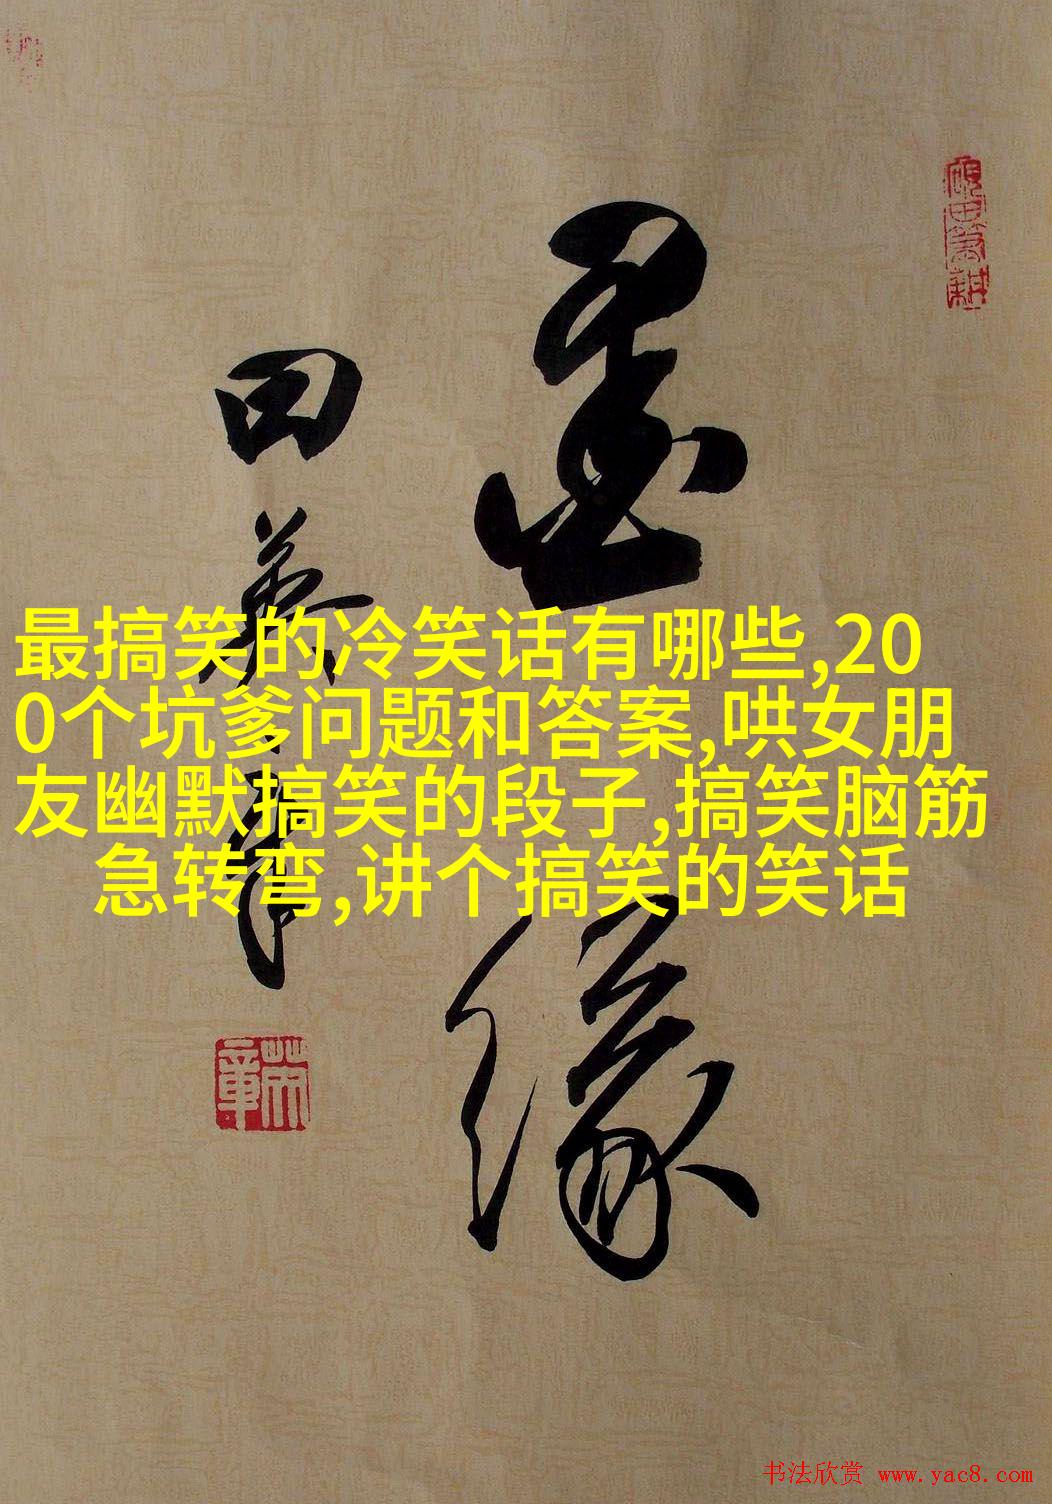 最搞笑的冷笑话有哪些,20
0个坑爹问题和答案,哄女朋
友幽默搞笑的段子,搞笑脑筋
急转弯,讲个搞笑的笑话
缘
田英章
书法欣赏 www.yac8.com